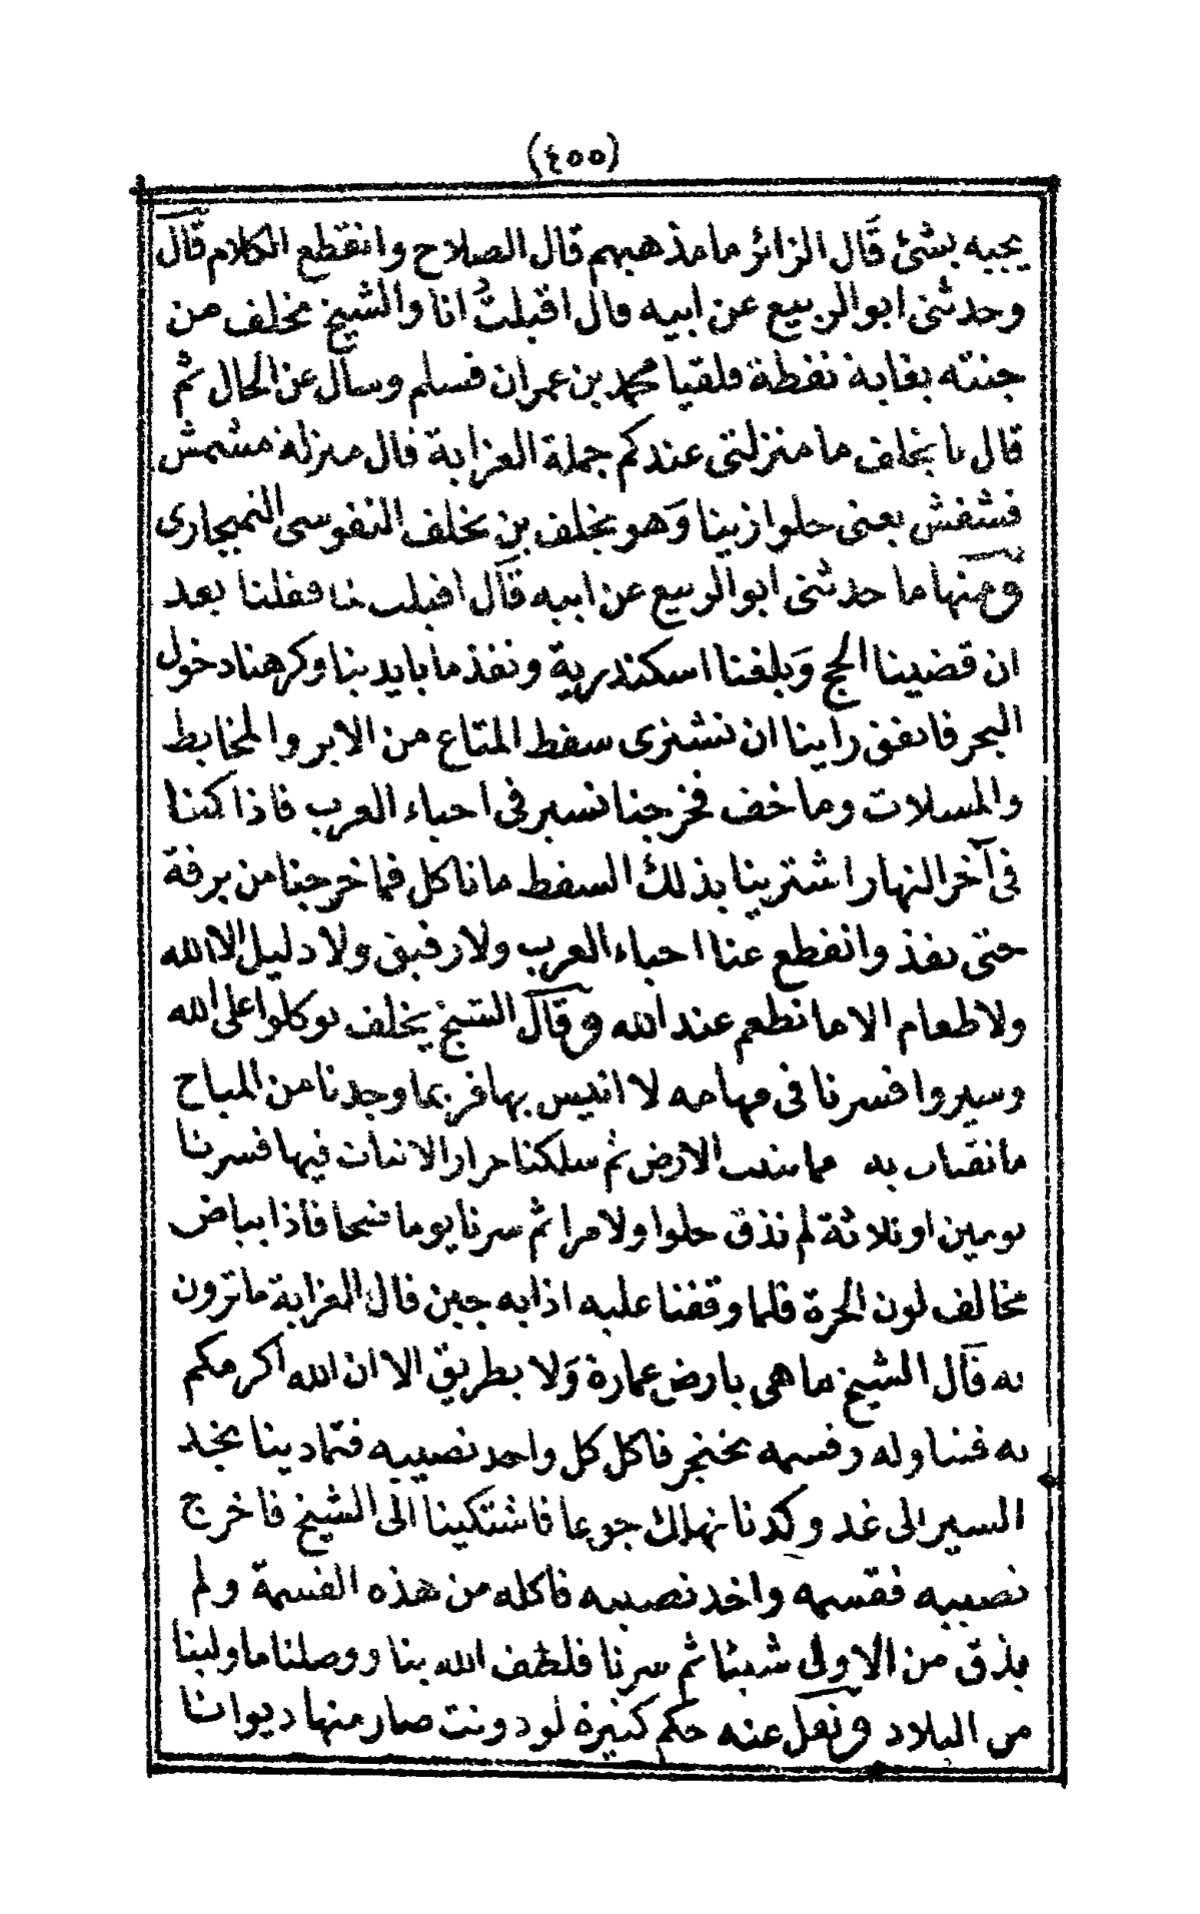 (٤٥٥)
يجبه بشئ قال الزائر ما مذهبهم قال الصلاح وانقطع الكلام قال
وحدثنى ابو الربيع عن ابيه قال اقبلت انا والشيخ مخلف من
جنته بغابة نفطة فلقيا محمد بن عمران فسلم وسأل عن الحال ثم
قال يا يخلف ما منزلتى عندكم جملة العزابة قال منزلة مشمش
فشفش يعنى حلوا زينا وهو يخلف بن يخلف النفوسى التميجارى
ومنها ما حدثنى ابو الربيع عن ابيه قال اقبلت فقلنا بعد
ان قضينا الحج وبلغنا اسكندرية ونفذ ما بايدينا وكرهنا دخول
البحر فاتفق راينا ان نشترى سفط المتاع من الابر والمخايط
والمسلات وما خف فخرجنا نسير فى احياء العرب فاذا كنا
فى آخر النهار اشترينا بذلك السفط ما ناكل فما خرجنا من برقة
حتى نفذ وانقطع عنا احياء العرب ولا رفيق ولا دليل الا الله
ولا طعام الا ما نطعم عند الله وقال الشيخ يخلف توكلوا على الله
وسيروا فسرنا فى مهامه لا انيس بها فربما وجدنا من المباح
ما نقتات به مما تنبت الارض ثم سلكنا حرار الا نبات فيها فسرنا
يومين او ثلاثة لم نذق حلوا ولا مرا ثم سرنا يوما فاذا ببياض
مخالف لون الحرة فلما وقفنا عليه اذا به جبن قال العزابة ما ترون
به قال الشيخ ما هى بارض عمارة ولا بطريق الا ان الله اكرمكم
به فتناوله وقسمه بخنجر فاكل كل واحد نصيبه فتمادينا بجد
السير الى غد وكدنا نهلك جوعا فاشتكينا الى الشيخ فاخرج
نصيبه فقسمه واخد نصيبه فاكله من هذه القسمة ولم
يذق من الاولى شيئا ثم سرنا فلطف الله بنا ووصلنا ما ولينا
من البلاد ونقل عنه حكم كثيرة لو دونت صار منها ديوانا